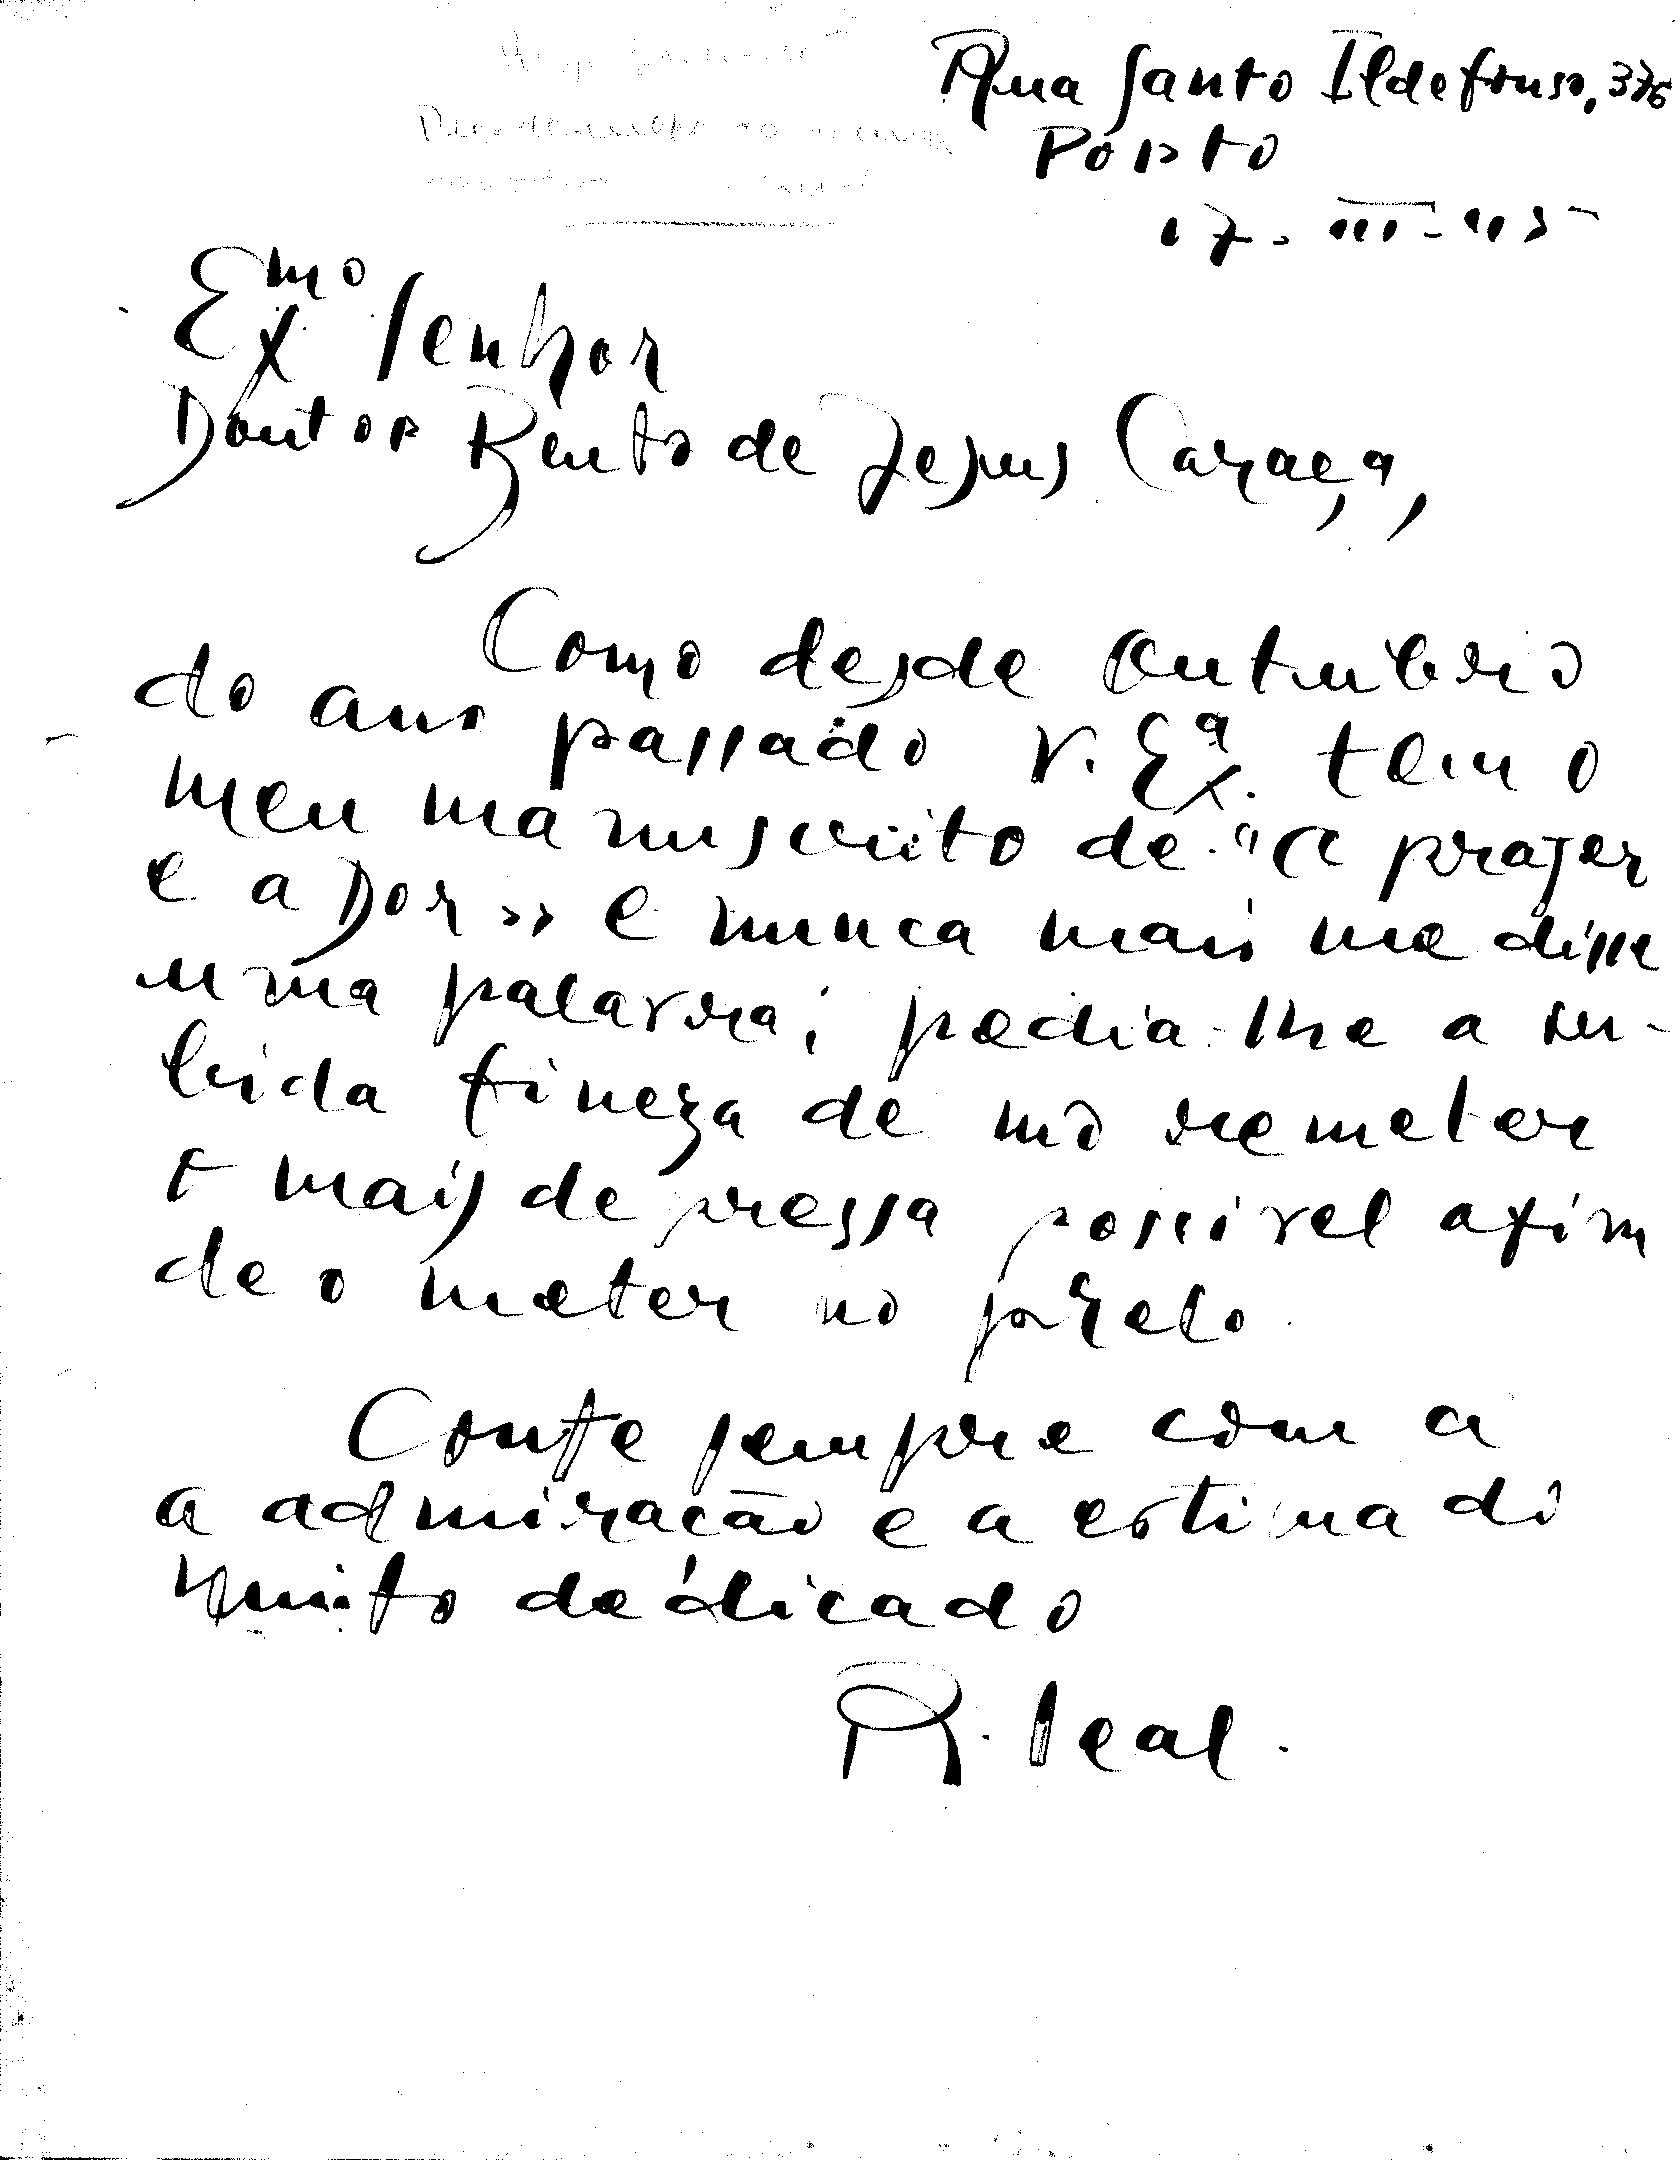 Rua Santo Ildefonso, 376
Porto
17-III-45
Exmo Senhor
Doutor Bento de Jesus Caraça,
Como desde Outubro
do ano passado V. Exª. tem o
meu manuscrito de "O prazer
e a Dor» e nunca mais me disse
uma palavra, pedia-lhe a su-
bida fineza de mo remeter
o mais depressa possivel afim
de o meter no prelo.
Conte sempre com a
a admiração e a estima do
muito dedicado
R. Leal.